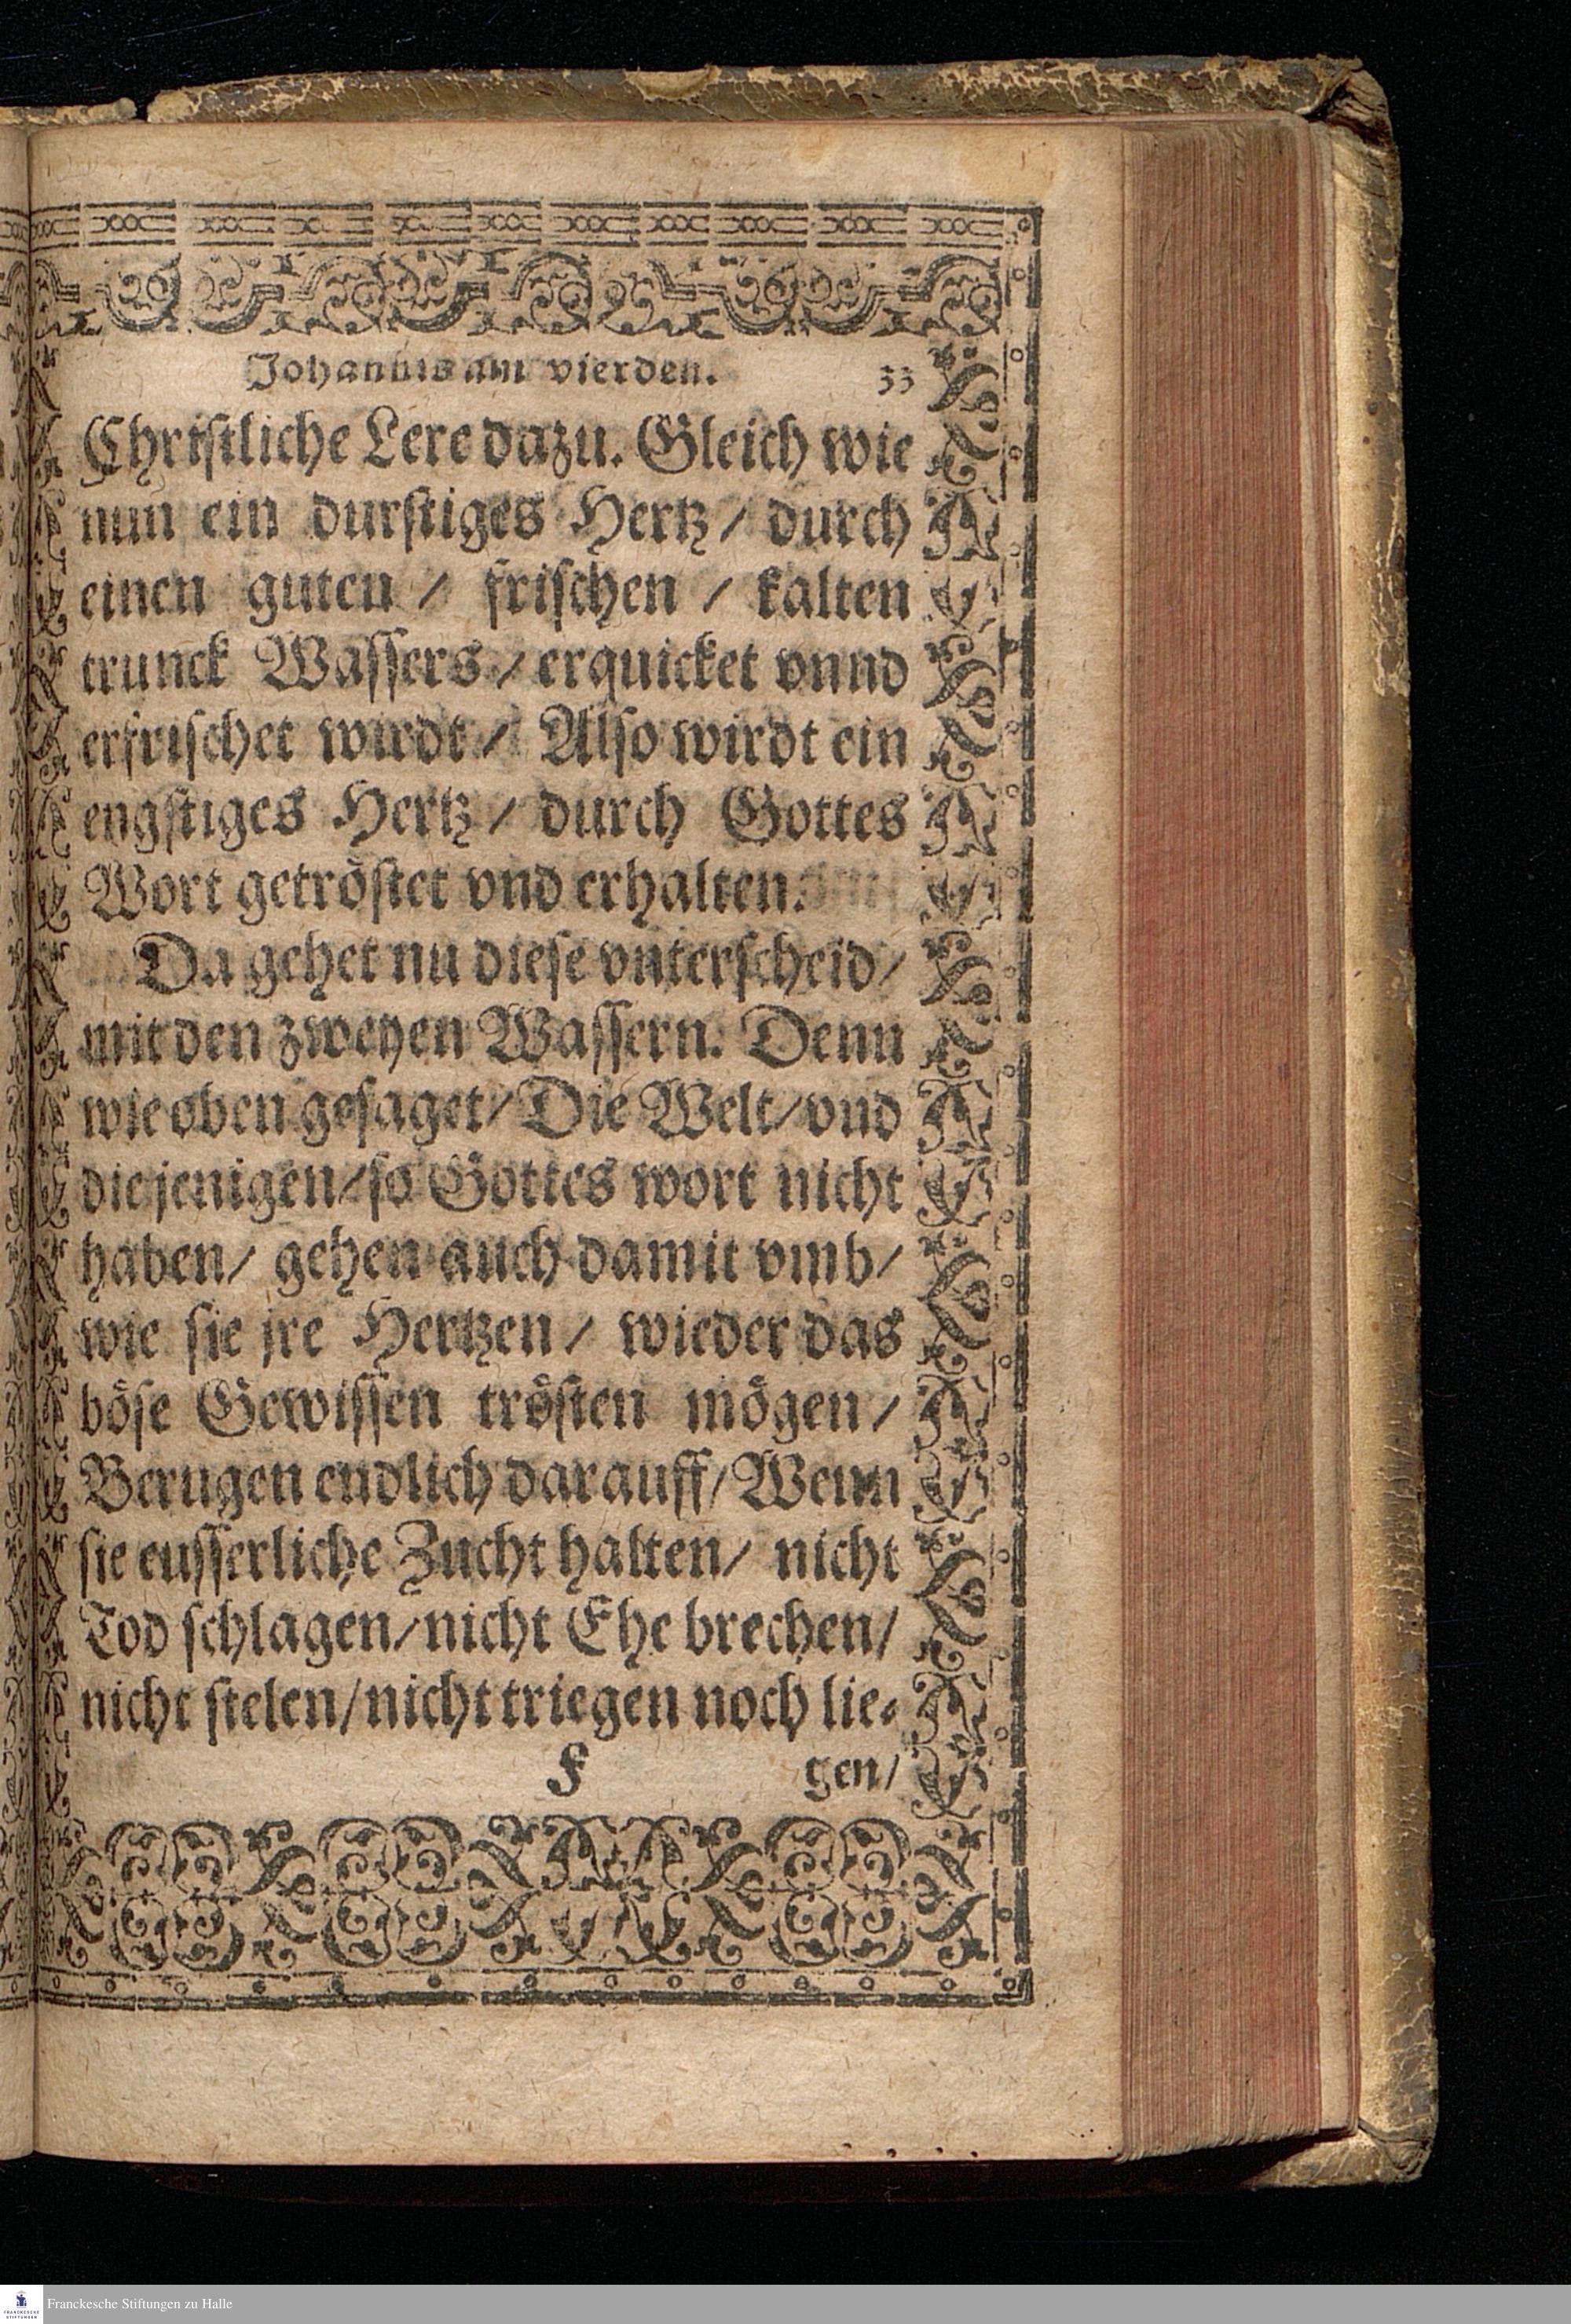 Johannis am vierden. 33
Christliche Lere dazu. Gleich wie
nun ein durstiges Hertz / durch
einen guten / frischen / kalten
trunck Wassers / erquicket vnnd
erfrischet wirdt / Also wirdt ein
engstiges Hertz / durch Gottes
Wort getröstet vnd erhalten.
Da gehet nu diese vnterscheid /
mit den zweyen Wassern. Denn
wie oben gesaget / Die Welt / vnd
die jenigen / so Gottes wort nicht
haben / gehen auch damit vmb /
wie sie jre Hertzen / wieder das
böse Gewissen trösten mögen /
Berugen endlich darauff / Wenn
sie eusserliche Zucht halten / nicht
Tod schlagen / nicht Ehe brechen /
nicht stelen / nicht triegen noch lie⸗
F gen /
FRANCKESCHE STIFTUNGEN
Franckesche Stiftungen zu Halle